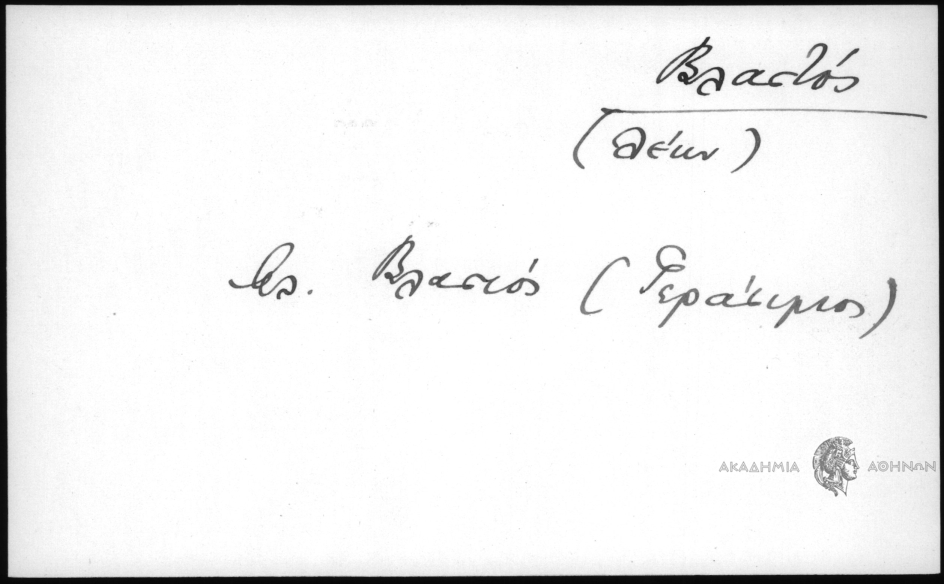 Βλαστός
(Λέκν)
Βλ. Βλαστός (Γεράσιμος)
ΑΚΑΔΗΜΙΑ ΑΘΗΝΩΝ